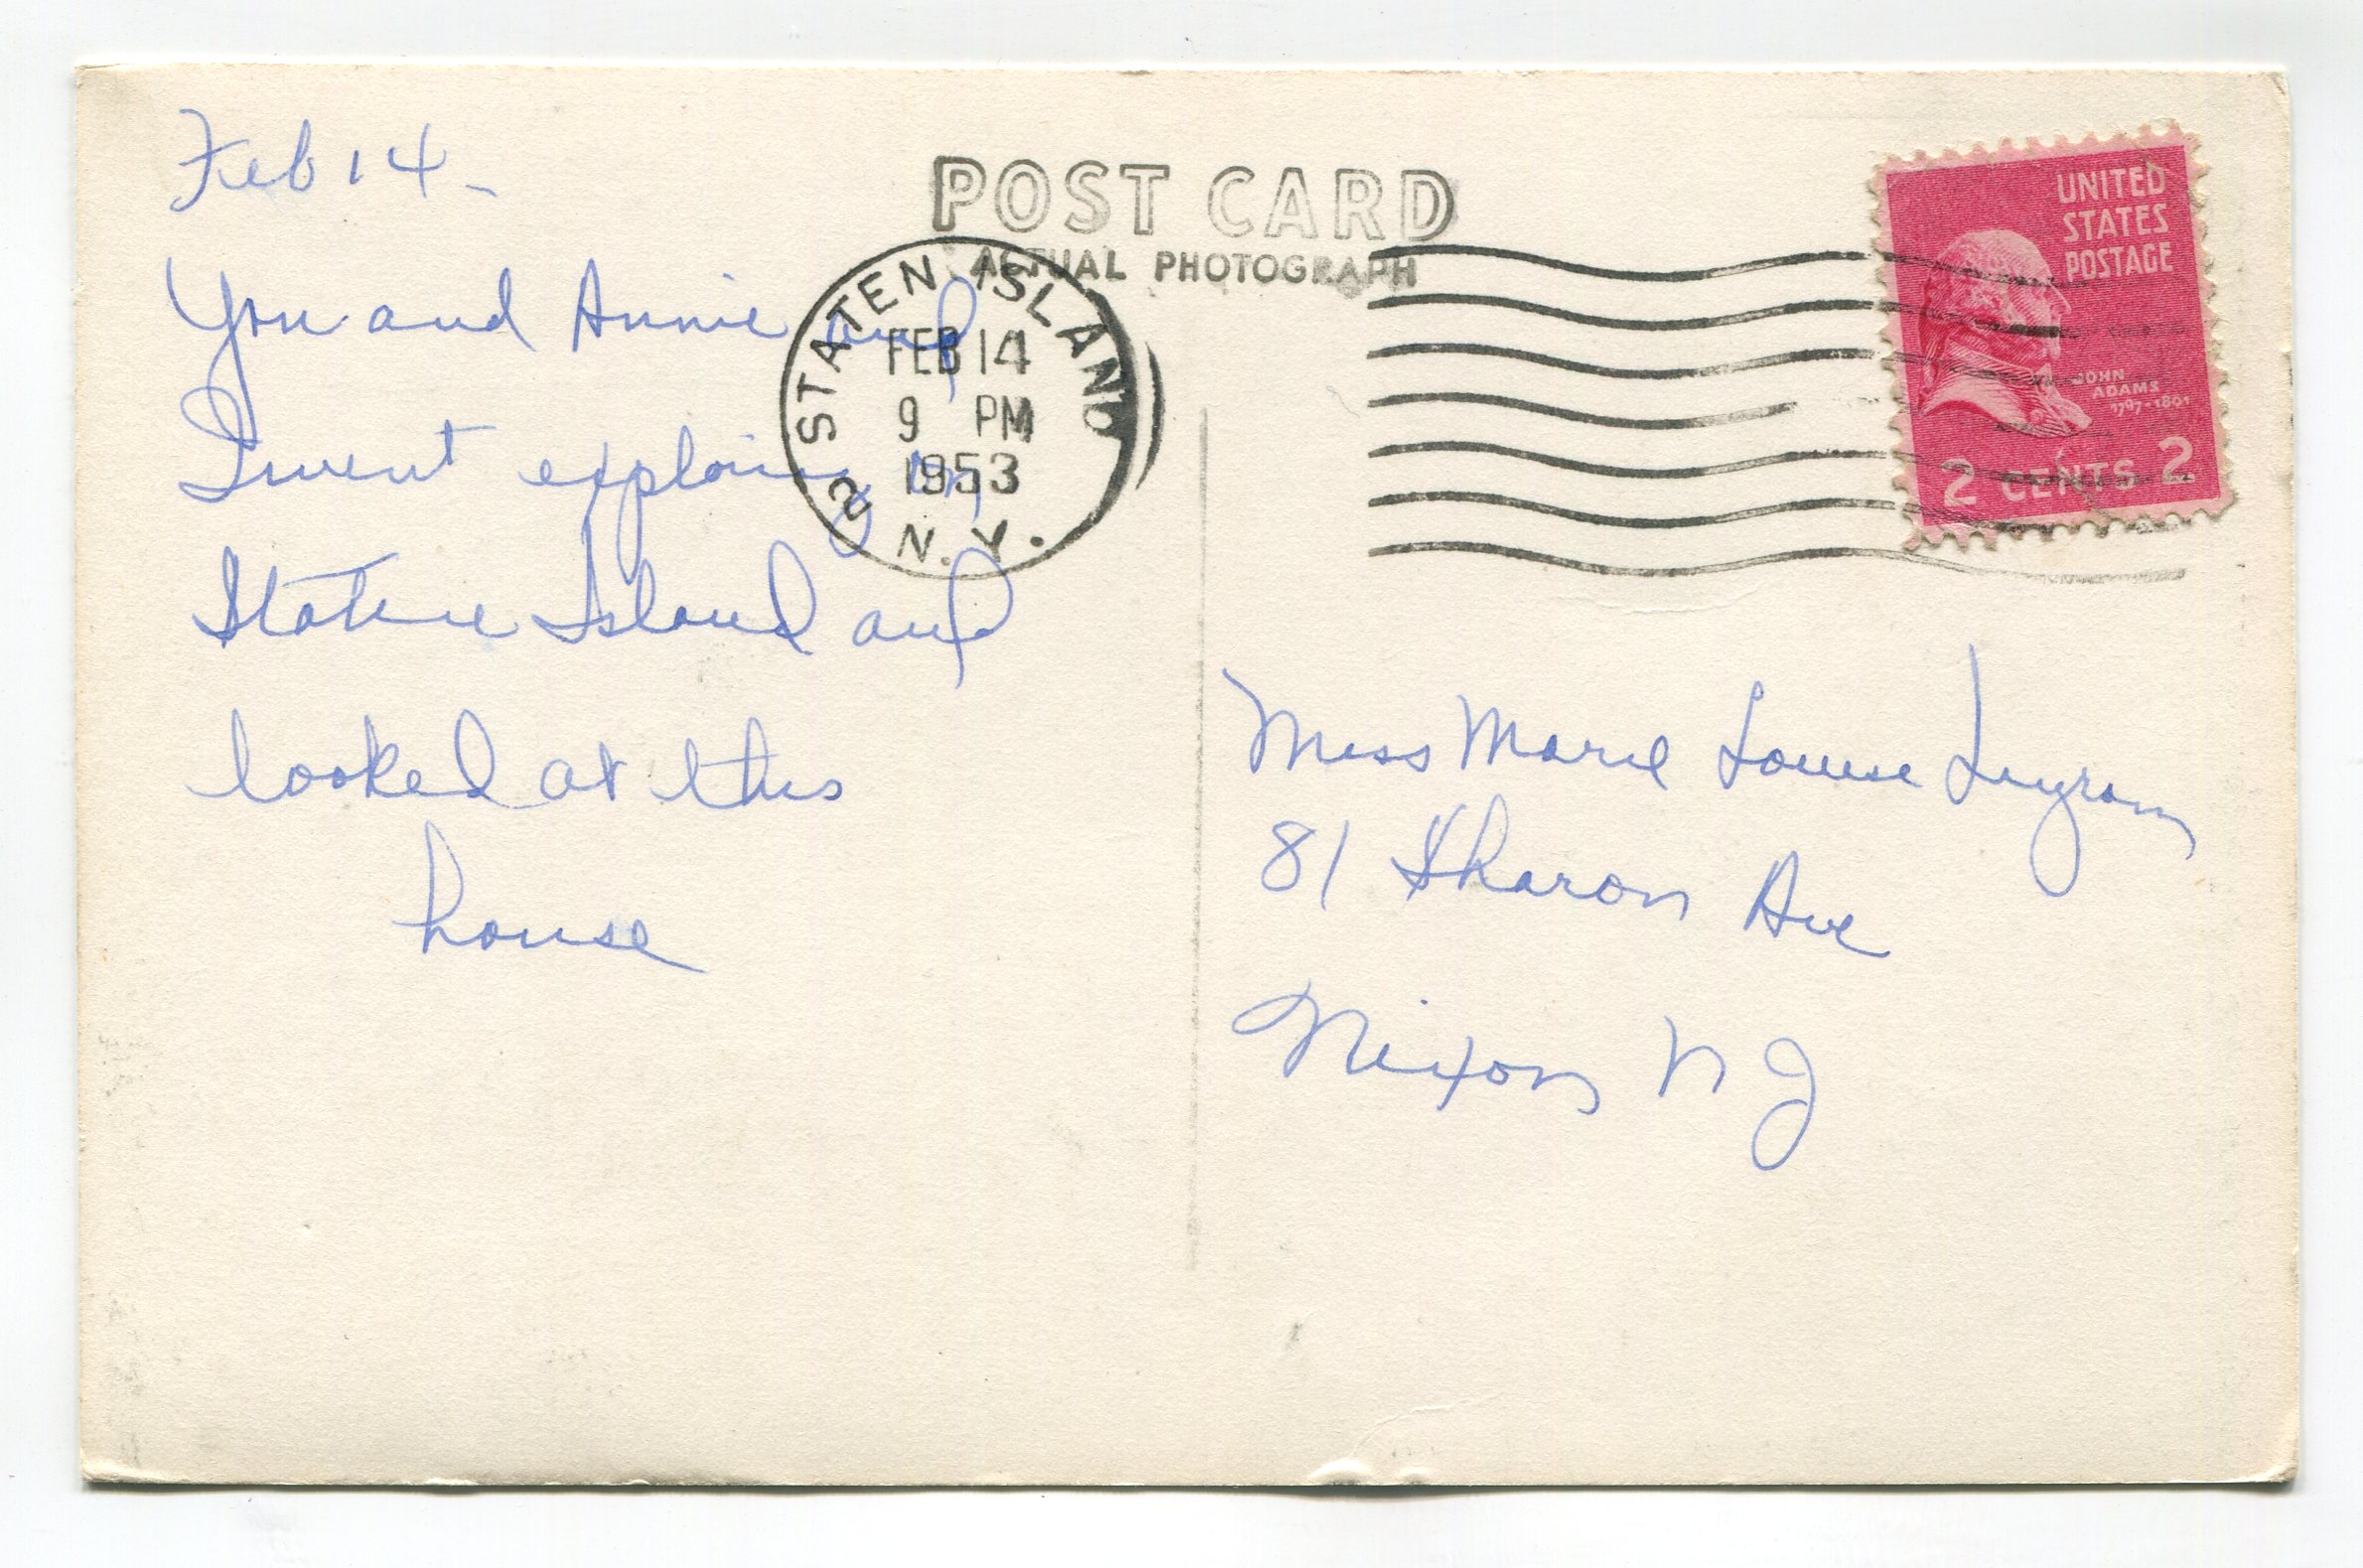 Feb 14 -
You and Annie and
I went exploring on
Staten Island and
looked at this
house
POST CARD
ACTUAL PHOTOGRAPH
STATEN ISLAND
FEB 14
9 PM
1953
2 N.Y.
UNITED
STATES
POSTAGE
JOHN
ADAMS
1797-1801
2 CENTS 2
Miss Marie Louise Ingram
81 Sharon Ave
Nixon N J